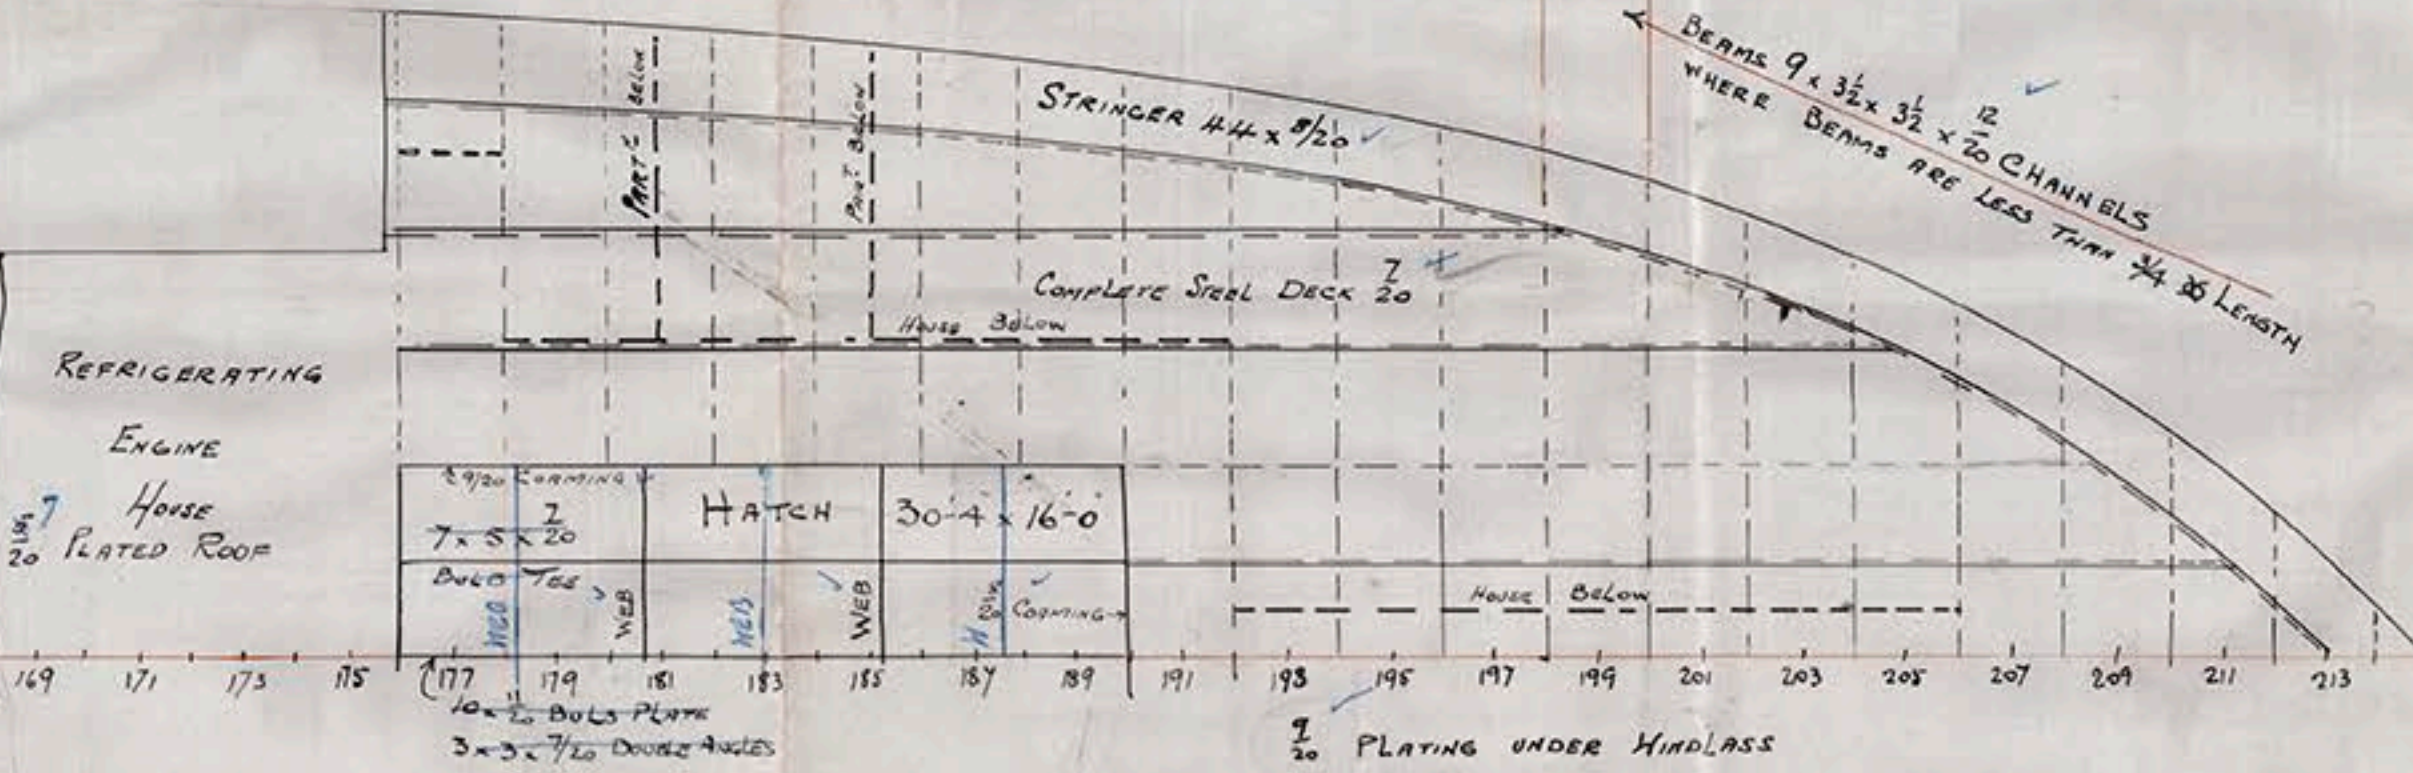 BEAMS 9 x 3½ x 3½ x 12/20 CHANNELS
WHERE BEAMS ARE LESS THAN ¾ LENGTH
STRINGER 44 x 8/20
PART BELOW
PART BELOW
COMPLETE STEEL DECK 7/20
HOUSE BELOW
REFRIGERATING
ENGINE
HOUSE
7
20 PLATED ROOF
9/20 COAMING
7 x 5 x 7/20
BULB TEE
HATCH 30-4 x 16-0
WEB
WEB
WEB
WEB
20 COAMING
HOUSE BELOW
169 171 173 175 177 179 181 183 185 187 189 191 193 195 197 199 201 203 205 207 209 211 213
10 x 11/20 BULB PLATE
3 x 3 x 7/20 DOUBLE ANGLES
9/20 PLATING UNDER WINDLASS